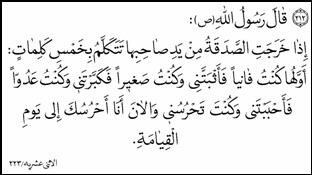 ﴿٢١٢﴾ قٰالَ رَسُولُ اللهِ (ص):
إِذٰا خَرَجَتِ الصَّدَقَةُ مِنْ يَدِ صٰاحِبِهٰا تَتَكَلَّمُ بِخَمْسِ كَلِمٰاتٍ:
أَوَّلُهٰا كُنْتُ فٰانِياً فَأَثْبَتَّنِي وَكُنْتُ صَغِيراً فَكَبَّرْتَنِي وَكُنْتُ عَدُوّاً
فَأَحْبَبْتَنِي وَكُنْتَ تَحْرُسُنِي وَالآنَ أَنَا أَحْرُسُكَ إِلىٰ يَومِ
الْقِيٰامَةِ.
الاثنىٰ عشريه/٢٢٣